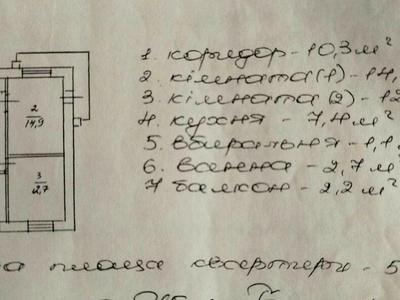 1. коридор - 10,3 м²
2. кімната (1) - 14,
3. кімната (2) - 12
4. кухня - 7,4 м²
5. вбиральня - 1,1
6. ванна - 2,7 м²
7 балкон - 2,2 м²
2
14,9
3
12,7
площа квартири - 5